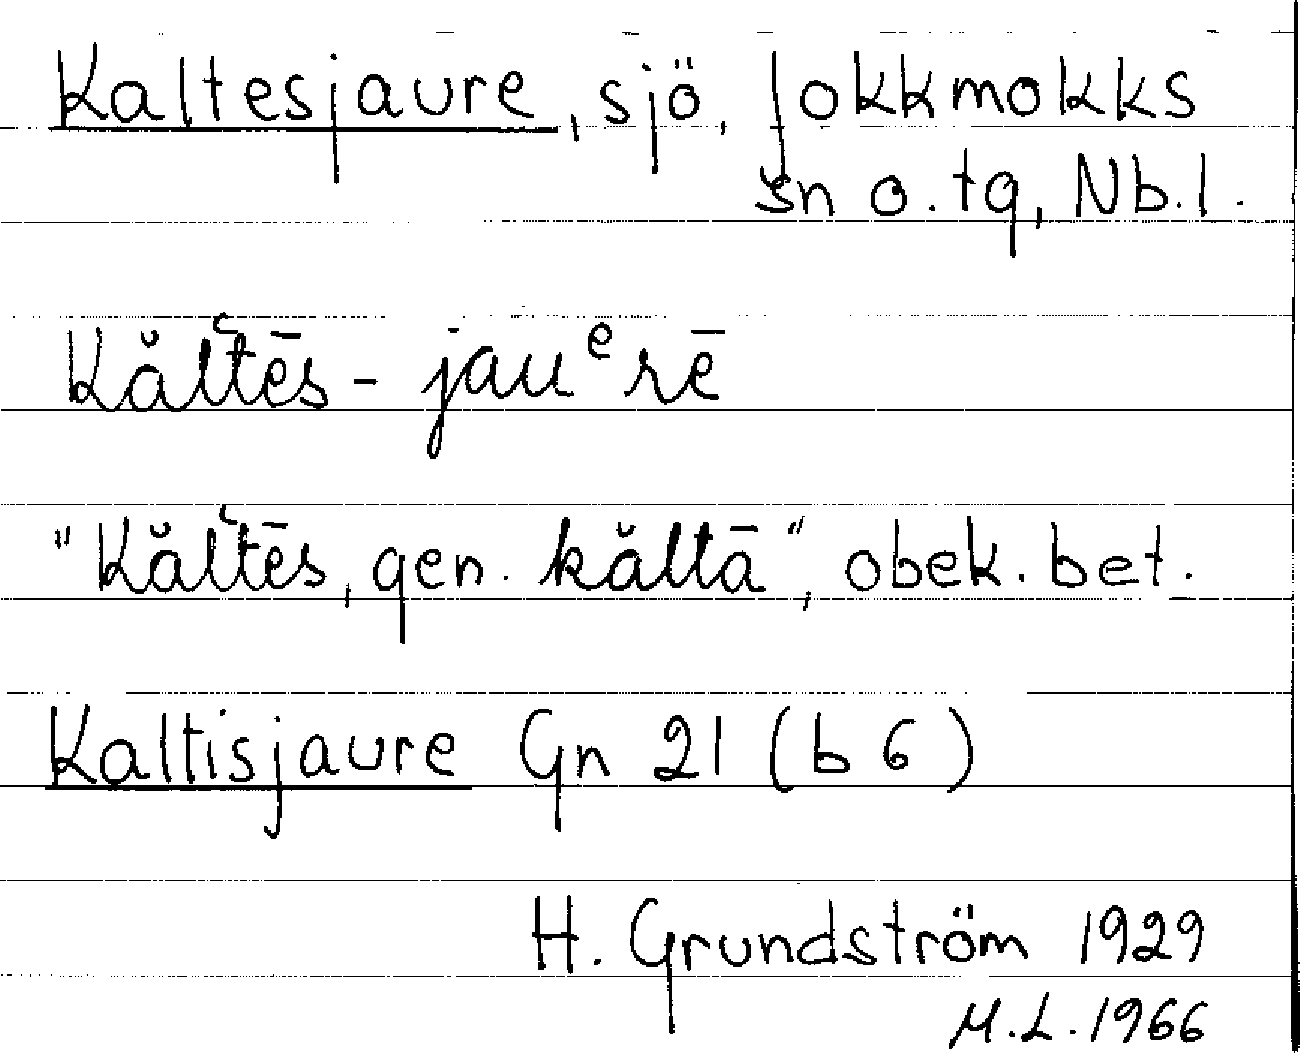 Kaltesjaure, sjö, Jokkmokks
sn o. tg, Nb. l.
Kăltʿēs - jauᵉrē
"Kăltʿēs, gen. kăltā", obek. bet.
Kaltisjaure Gn 21 (b 6)
H. Grundström 1929
M.L. 1966